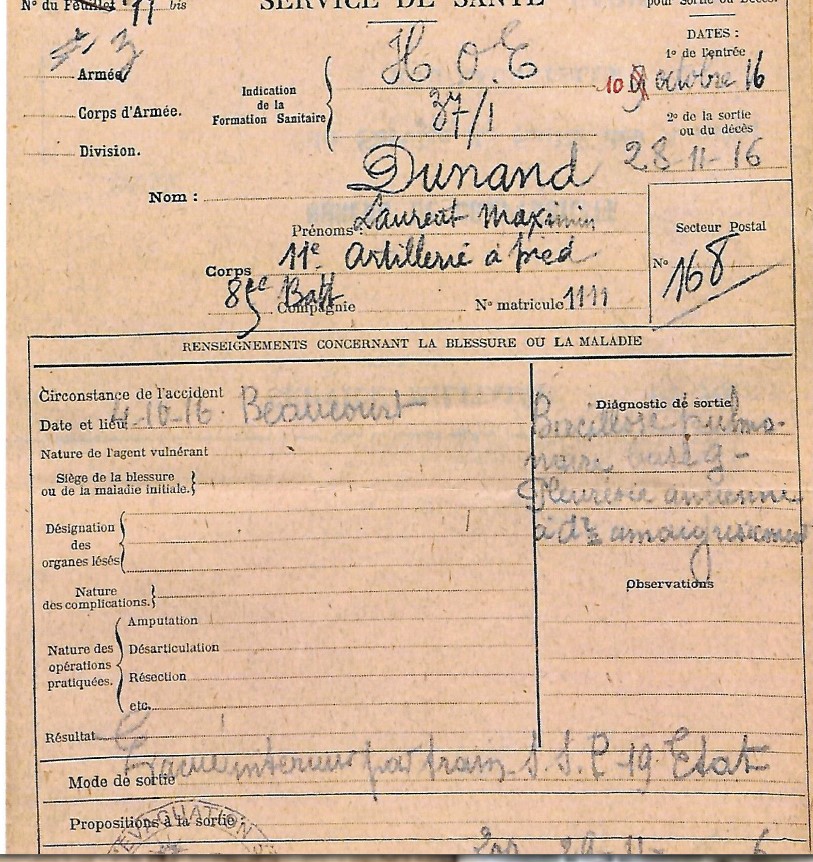 N° du Feuillet 11 bis
SERVICE DE SANTÉ
pour Sortie ou Décès.
DATES :
1° de l'entrée
10 octobre 16
2° de la sortie
ou du décès
28-11-16
Armée
Corps d'Armée.
Division.
Indication
de la
Formation Sanitaire
H.O.E
37/1
Nom : Dunand
Prénoms : Laurent Maximin
Corps 11e Artillerie à pied
8e Batt
Compagnie
N° matricule 1111
Secteur Postal
N° 168
RENSEIGNEMENTS CONCERNANT LA BLESSURE OU LA MALADIE
Circonstance de l'accident
Date et lieu 4-10-16 Beaucourt
Nature de l'agent vulnérant
Siège de la blessure
ou de la maladie initiale.
Désignation
des
organes lésés
Nature
des complications.
Nature des
opérations
pratiquées.
Amputation
Désarticulation
Résection
etc.
Diagnostic de sortie
Bacillose pulmo-
naire base g -
Pleurésie ancienne
à dte amaigrissement
Observations
Résultat
Mode de sortie Evacué intérieur par train S.S.P 19 Etat
Propositions à la sortie
EVACUATION